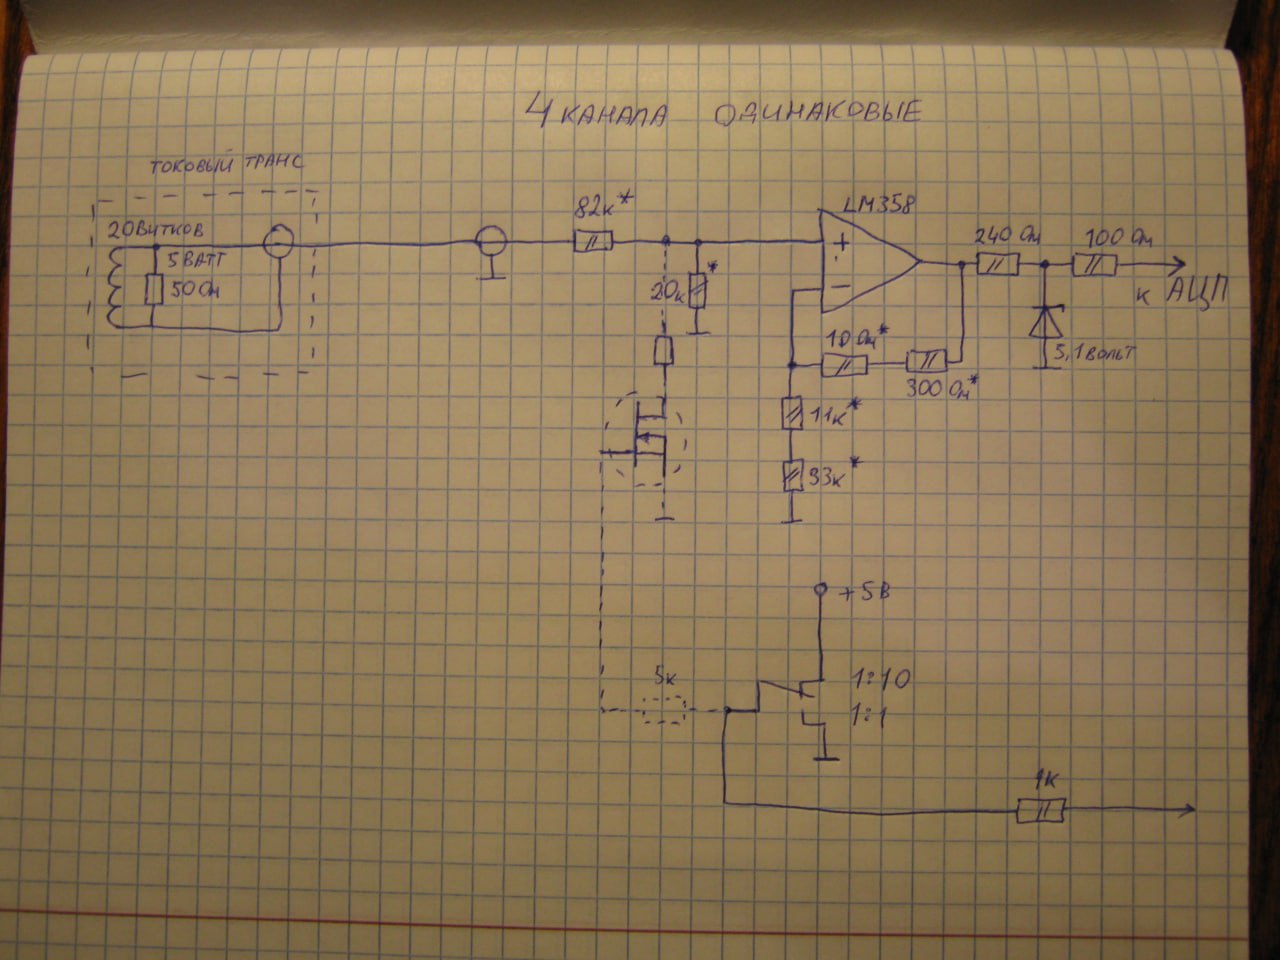 4 КАНАЛА ОДИНАКОВЫЕ
ТОКОВЫЙ ТРАНС
20 ВИТКОВ
5 ВАТТ
50 Ом
82к*
20к*
LM358
+
-
240 Ом
100 Ом
к АЦП
5,1 вольт
10 Ом*
300 Ом*
11к*
33к*
+5В
5к
1:10
1:1
1к